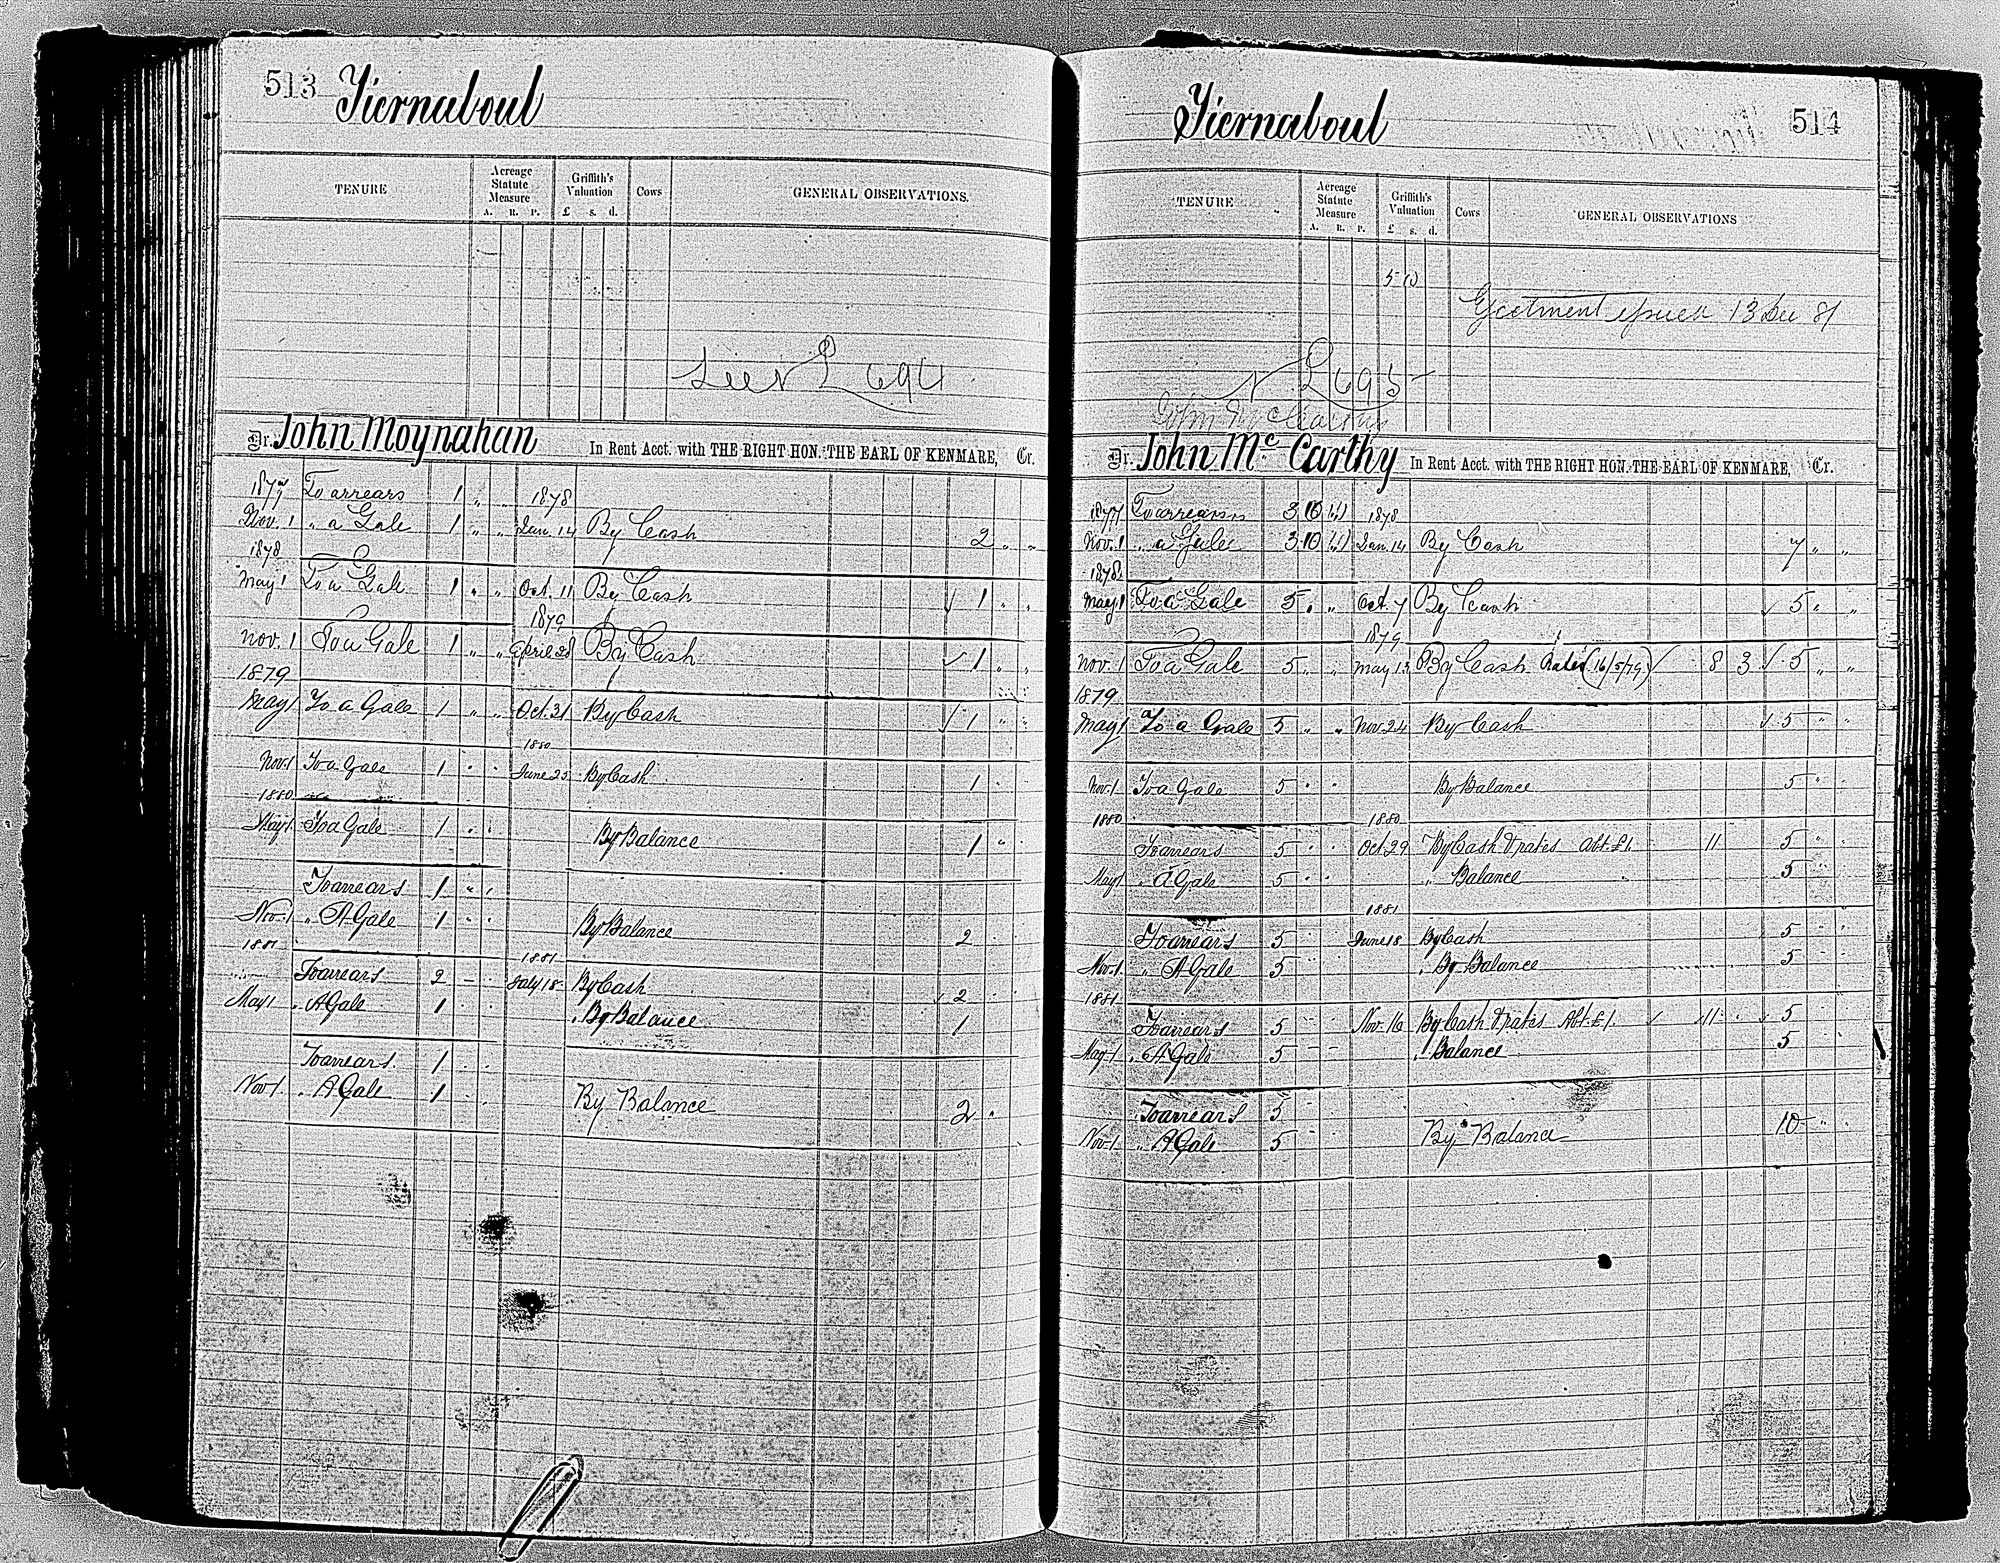 513 Tiernaboul
TENURE Acreage Statute Measure A. R. P. Griffith's Valuation £ s. d. Cows GENERAL OBSERVATIONS.
See N L 694
Dr. John Moynahan In Rent Acct. with THE RIGHT HON. THE EARL OF KENMARE, Cr.
1877 To arrears 1 " " 1878
Nov. 1 " a Gale 1 " " Jan. 14 By Cash 2 " "
1878
May 1 To a Gale 1 " " Oct. 11 By Cash √ 1 " "
1879
Nov. 1 To a Gale 1 " " April 28 By Cash √ 1 " "
1879
May 1 To a Gale 1 " " Oct. 31 By Cash √ 1 " "
1880
Nov. 1 To a Gale 1 " " June 23 By Cash 1 "
1880
May 1 To a Gale 1 " " By Balance 1 "
To arrears 1 " "
Nov. 1 " A Gale 1 " " By Balance 2
1881 1881
To arrears 2 - " July 18 By Cash √ 2
May 1 " A Gale 1 " " By Balance 1
To arrears 1 " "
Nov. 1 " A Gale 1 " " By Balance 2 "
Tiernaboul 514
TENURE Acreage Statute Measure A. R. P. Griffith's Valuation £ s. d. Cows GENERAL OBSERVATIONS
5 10
Ejectment issued 13 Dec 81
N L 695
John McCarthy
Dr. John Mc Carthy In Rent Acct. with THE RIGHT HON. THE EARL OF KENMARE, Cr.
1877 To arrears 3 10 " 1878
Nov. 1 " a Gale 3 10 " Jan. 14 By Cash 7 " "
1878
May 1 To a Gale 5 " " Oct. 7 By Cash √ 5 " "
1879
Nov. 1 To a Gale 5 " " May 13 By Cash Rates (16/5/79) √ 8 3 √ 5 " "
1879
May 1 To a Gale 5 " " Nov. 24 By Cash √ 5 " "
Nov. 1 To a Gale 5 " " By Balance 5 " "
1880 1880
To arrears 5 " " Oct. 29 By Cash & rates Abt. £1. 11 5 "
May 1 " A Gale 5 " " " Balance 5 "
1881
To arrears 5 " " June 18 By Cash 5 "
Nov. 1 " A Gale 5 " By Balance 5 "
1881
To arrears 5 " " Nov. 16 By Cash & rates Abt. £1. √ 11 " √ 5 "
May 1 " A Gale 5 - - " Balance 5 "
To arrears 5 "
Nov. 1 " A Gale 5 " By Balance 10 " "